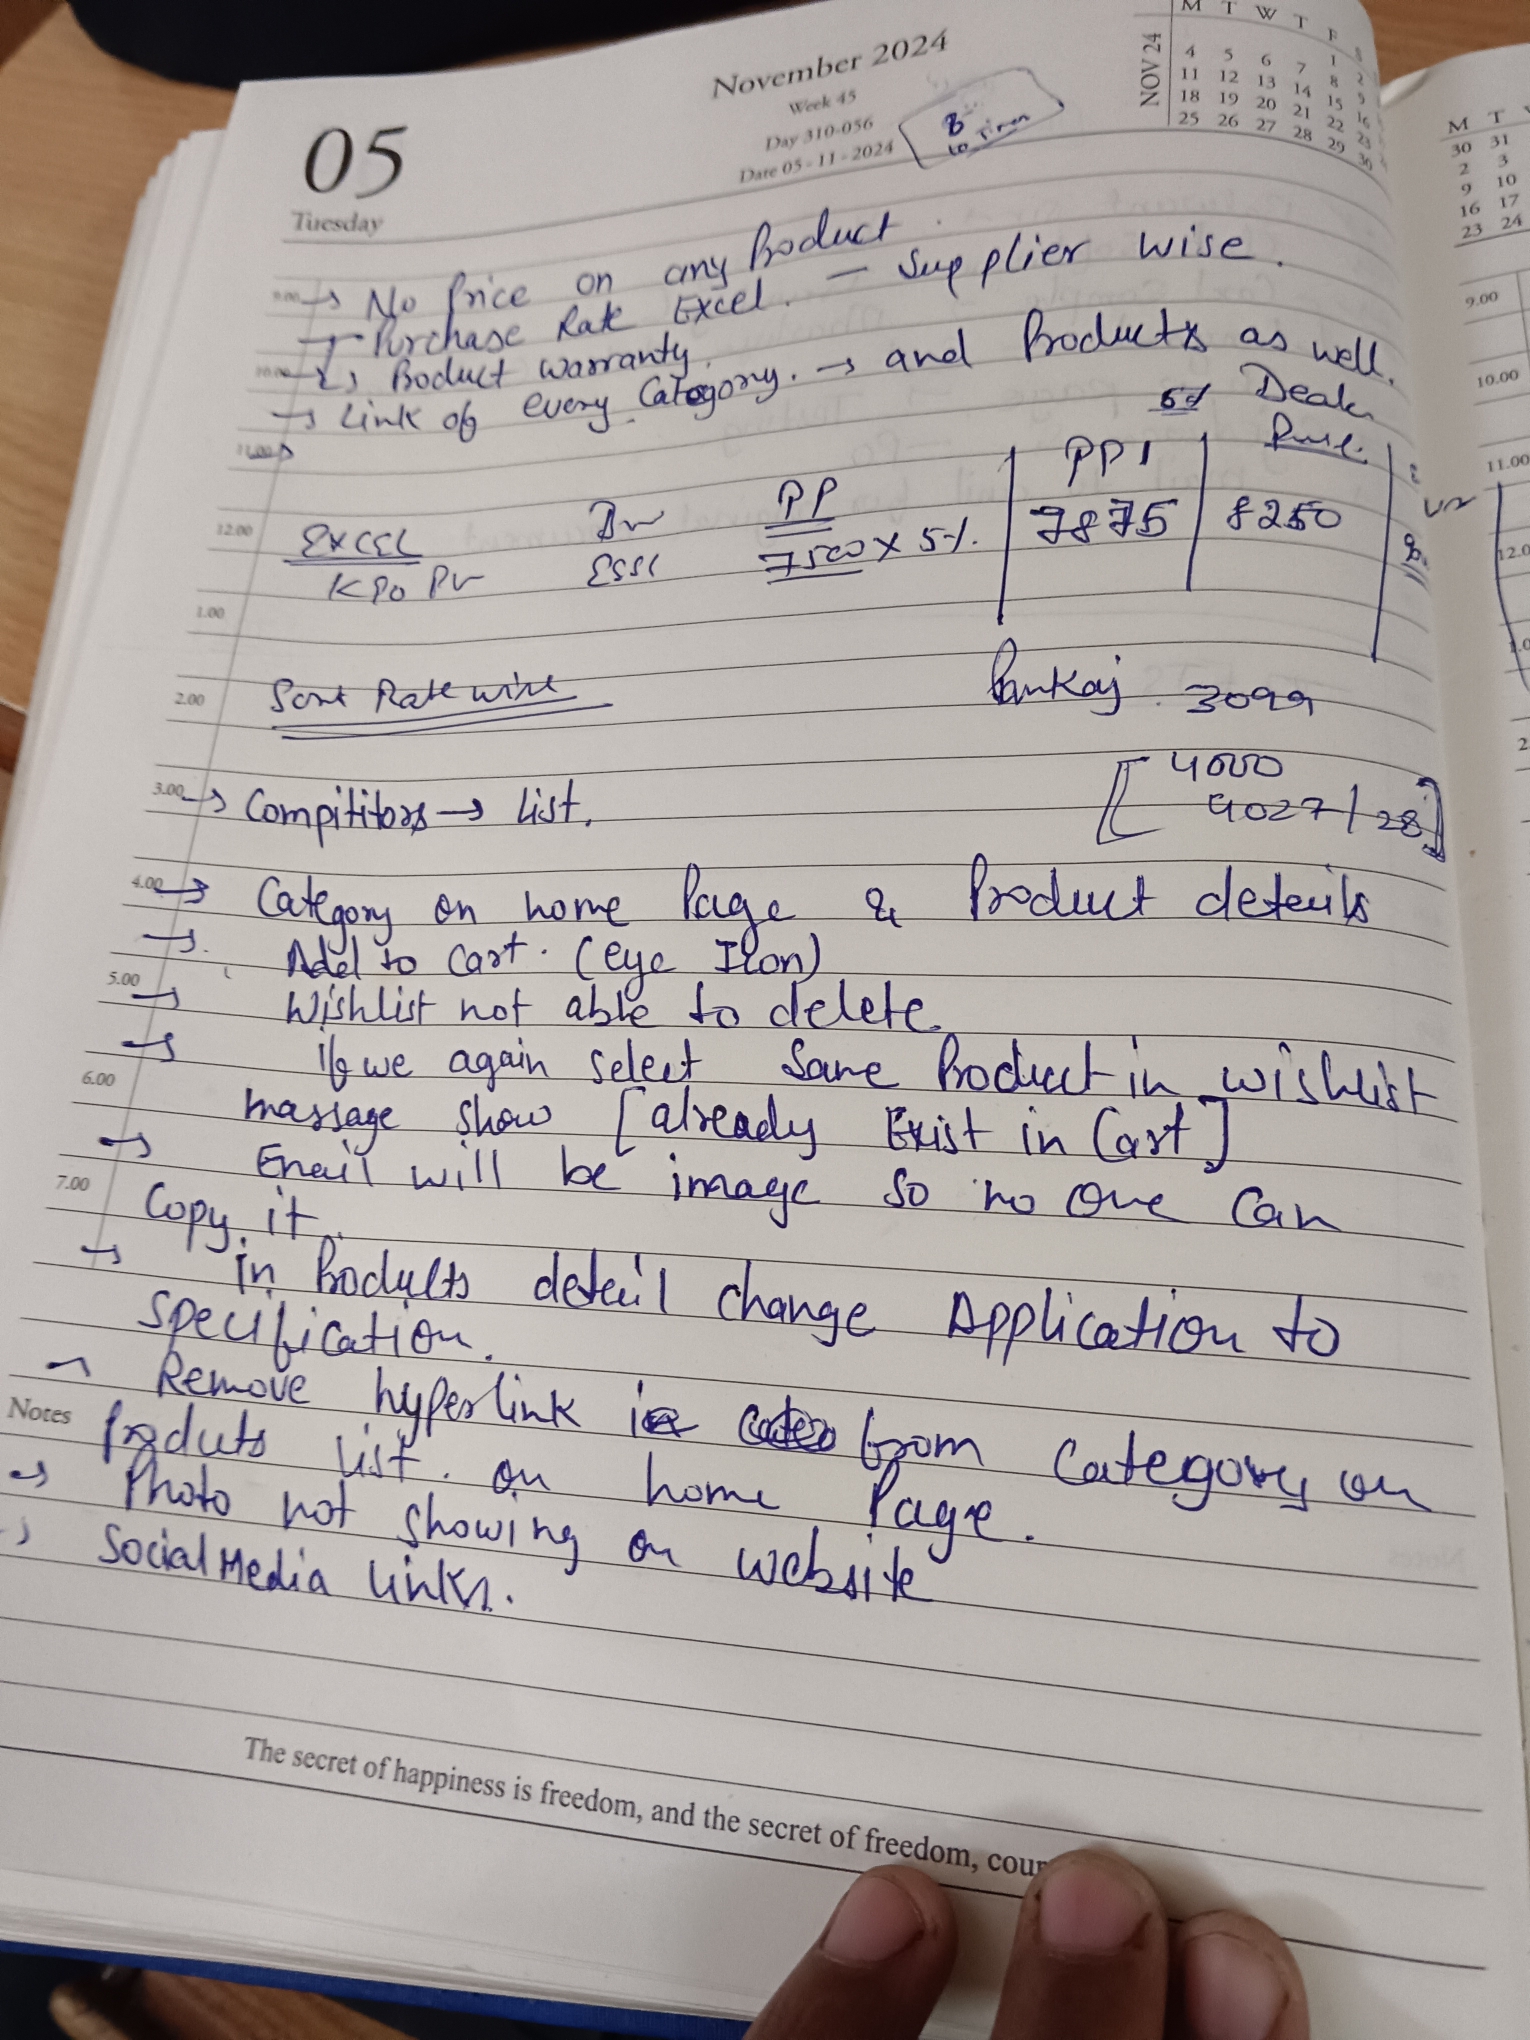 November 2024
Week 45
Day 310-056
Date 05 - 11 - 2024
05
Tuesday
NOV 24
M T W T F S
1 2
4 5 6 7 8 9
11 12 13 14 15 16
18 19 20 21 22 23
25 26 27 28 29 30
M T
30 31
2 3
9 10
16 17
23 24
9.00 → No Price on any Product.
→ Purchase Rate Excel. – Supplier wise.
10.00 → Product warranty.
→ Link of every Category. → and Products as well.
11.00
5% Dealer
PP PP1
12.00 EXCEL
ESSL 7500 x 5%. 7875 8250
1.00
2.00 Sort Rate wise Pankaj 3099
3.00 → Compititors → List. [ 4000
4027/28 ]
4.00 → Category on home Page & Product details
→ Add to Cart. (eye Icon)
5.00 → Wishlist not able to delete
→ if we again select Same Product in wishlist
6.00 massage show [already Exist in Cart]
→ Email will be image So no one Can
7.00 Copy it.
→ in Products detail change Application to
Specification.
→ Remove hyperlink from Category on
Notes Products List. on home Page.
→ Photo not showing on website
→ Social Media links.
The secret of happiness is freedom, and the secret of freedom, cour
9.00
10.00
11.00